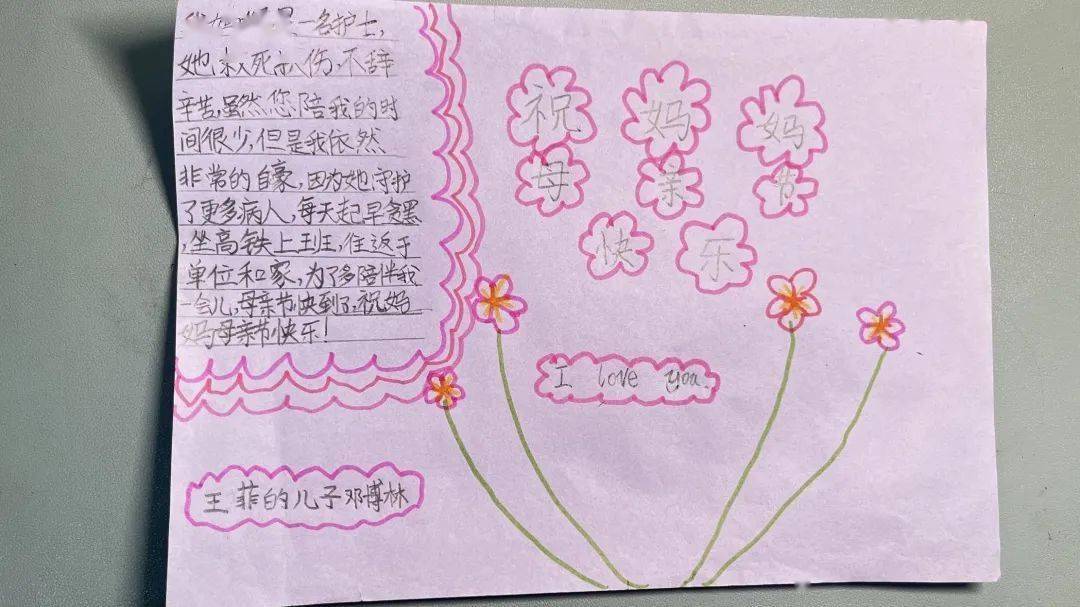 一名护士,
她救死扶伤,不辞
辛苦,虽然您陪我的时
间很少,但是我依然
非常的自豪,因为她守护
了更多病人,每天起早贪黑
,坐高铁上班,往返于
单位和家,为了多陪伴我
一会儿,母亲节快到了,祝妈
妈母亲节快乐!
祝妈妈
母亲节
快乐
I love you.
王菲的儿子邓博林